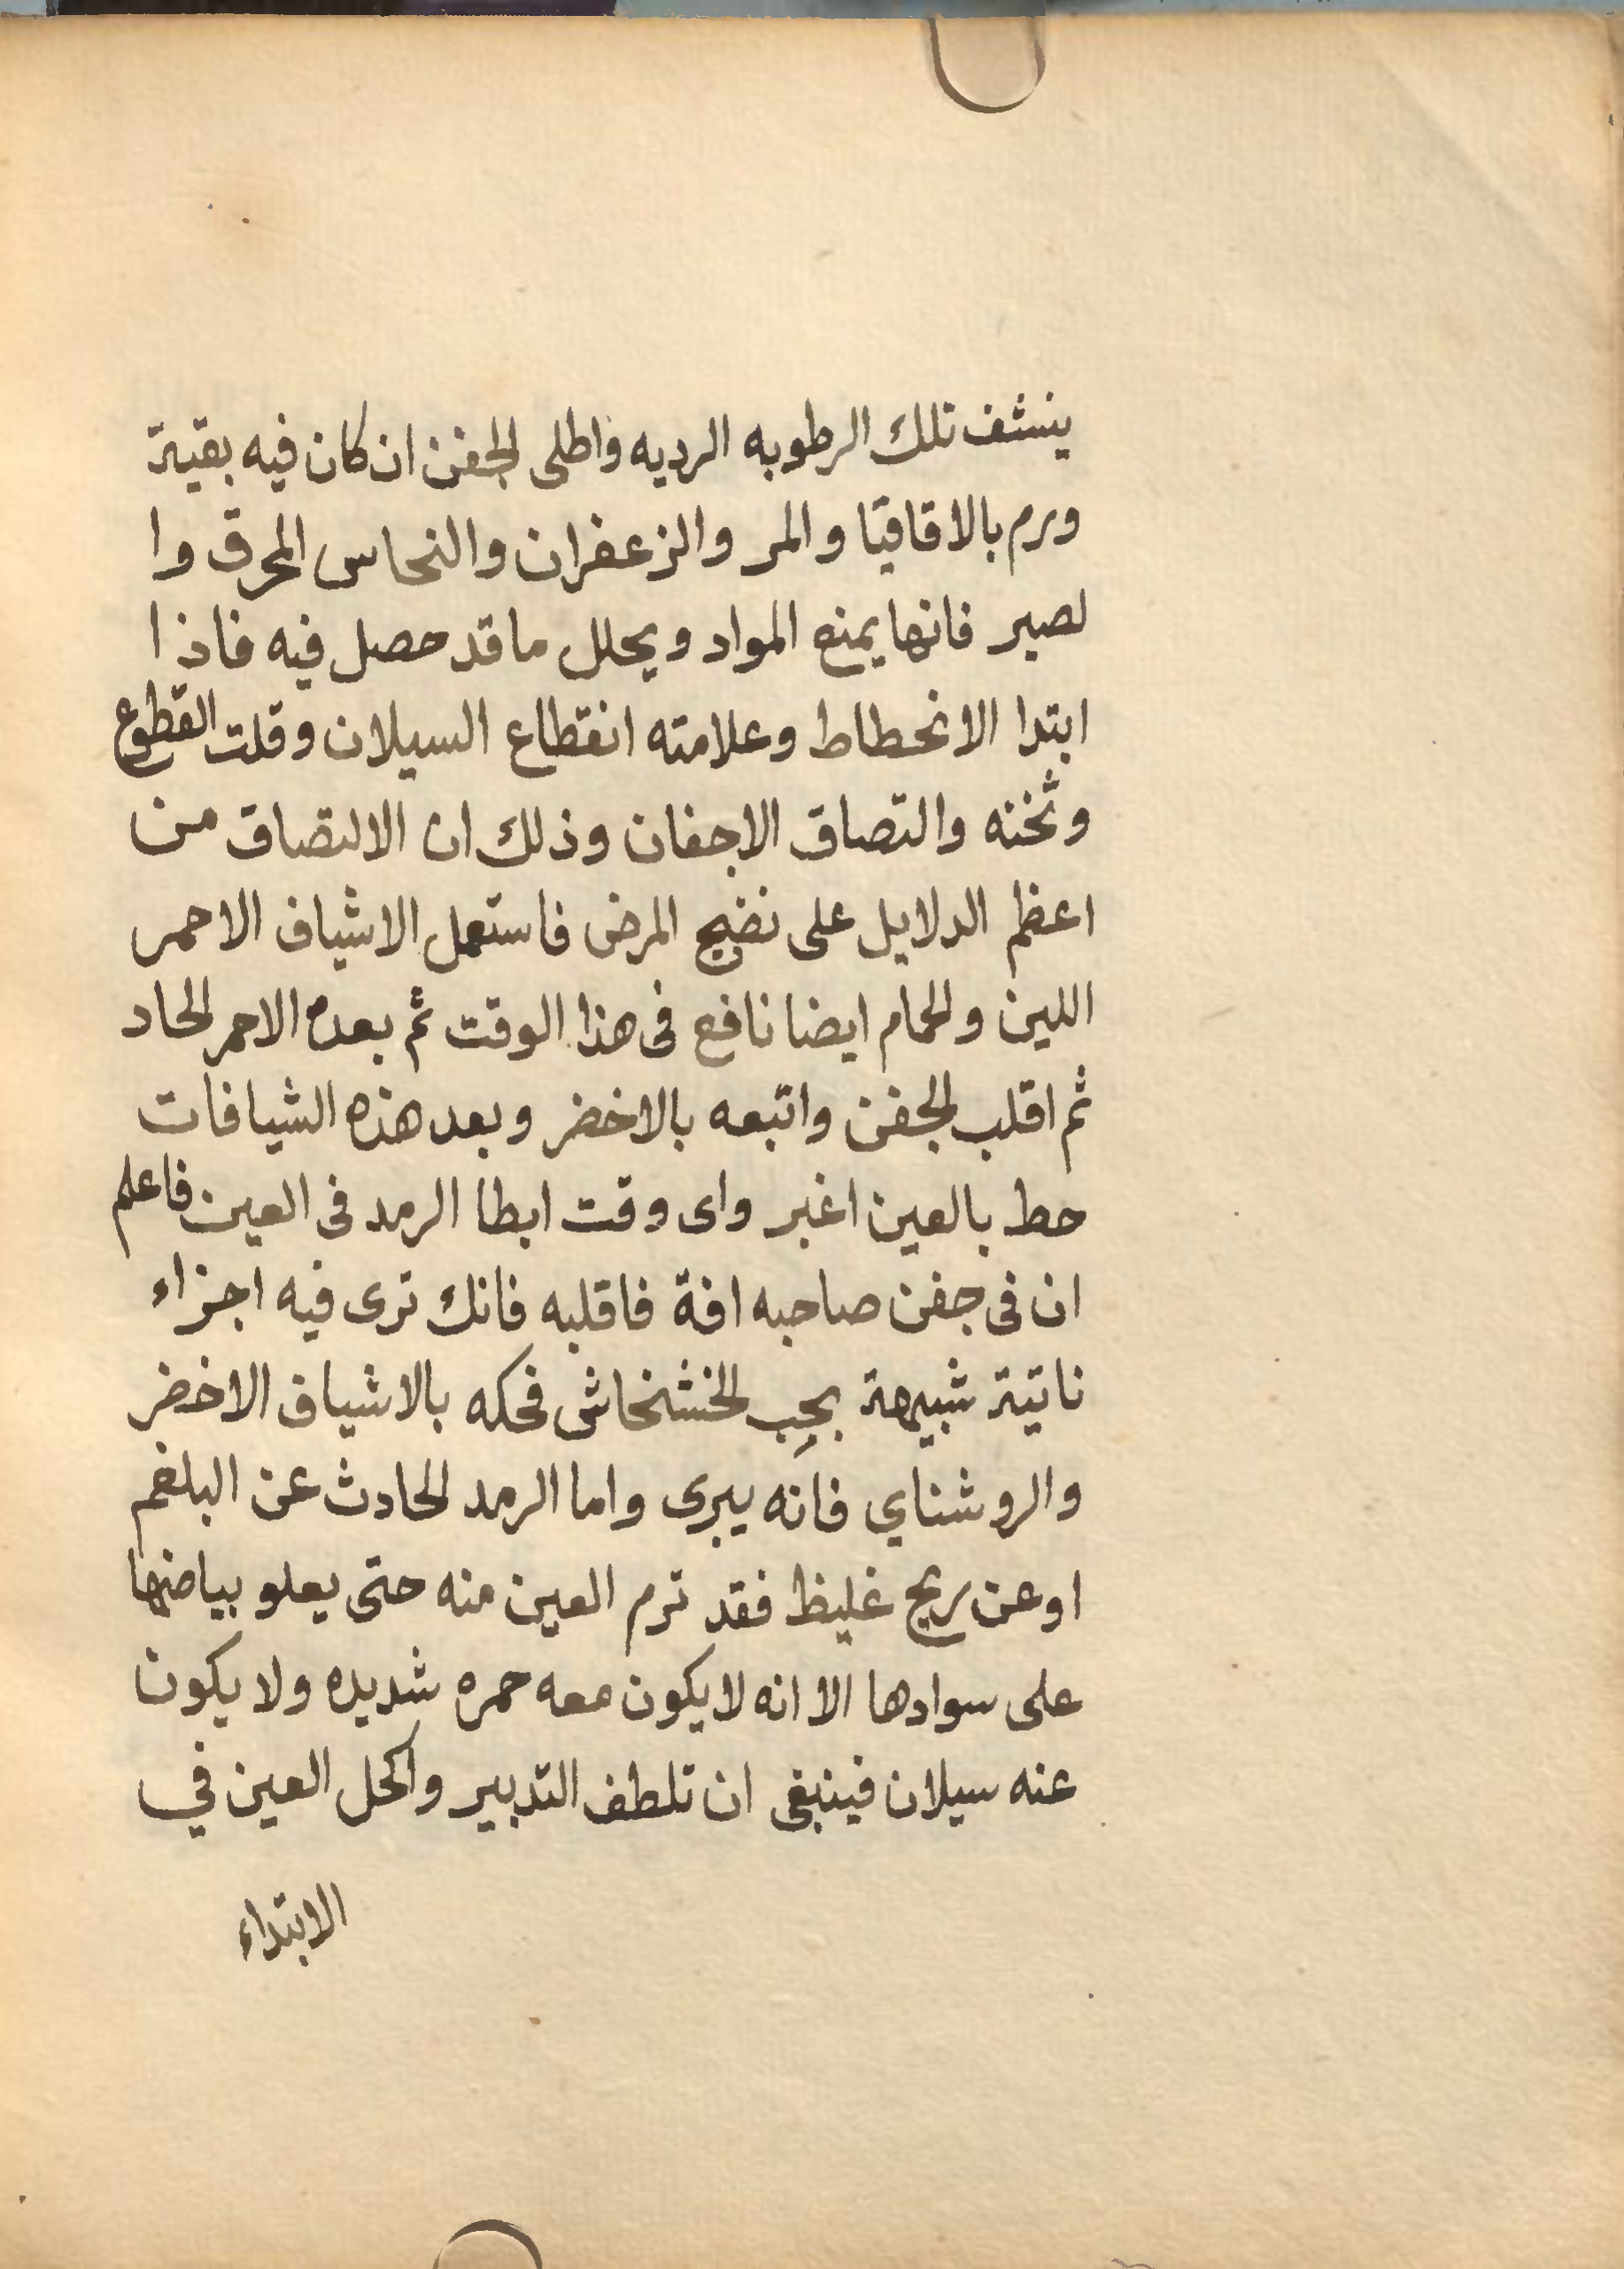 ينشف تلك الرطوبه الرديه واطلى الجفن ان كان فيه بقية
ورم بالاقاقيا والمر والزعفران والنحاس المحرق وا
لصبر فانها يمنع المواد ويحلل ما قد حصل فيه فاذا
ابتدا الانحطاط وعلامته انقطاع السيلان وقلت القطوع
وثخنه والتصاق الاجفان وذلك ان الالتصاق من
اعظم الدلايل على نضج المرض فاستعمل الاشياف الاحمر
اللين والحمام ايضا نافع فى هذا الوقت ثم بعده الاحمر الحاد
ثم اقلب الجفن واتبعه بالاخضر وبعد هذه الشيافات
حط بالعين اغبر واى وقت ابطا الرمد فى العين فاعلم
ان فى جفن صاحبه افة فاقلبه فانك ترى فيه اجزاء
ناتية شبيهة بحب الخشخاش فحكه بالاشياف الاخضر
والروشناي فانه يبرى واما الرمد الحادث عن البلغم
او عن ريح غليظ فقد ترم العين منه حتى يعلو بياضها
على سوادها الا انه لا يكون معه حمره شديده ولا يكون
عنه سيلان فينبغى ان تلطف التدبير واكحل العين في
الابتداء